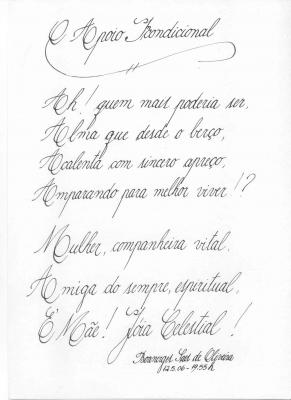 O Apoio Icondicional
Ah! quem mais poderia ser,
Alma que desde o berço,
Acalenta com sincero apreço,
Amparando para melhor viver!?
Mulher, companheira vital.
Amiga do sempre, espiritual,
É Mãe! Jóia Celestial!
de Oliveira
12.5.06 - 19:55h